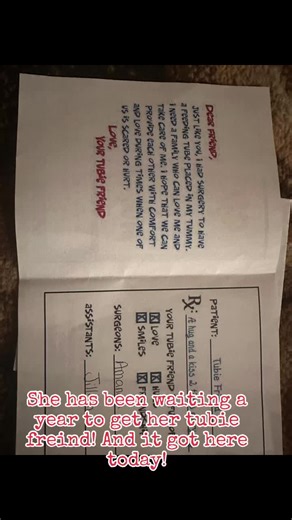 Dear Friend,
Just like you, I had surgery to have
a feeding tube placed in my tummy.
I need a family who can love me and
take care of me. I hope that we can
provide each other with comfort
and love during times when one of
us is scared or hurt.
Love,
Your Tubie Friend
Patient: Tubie Fr
Rx: A hug and a kiss
Your Tubie Friend
Love
Smiles
Surgeons: Aman
Assistants:
She has been waiting a
year to get her tubie
freind! And it got here
today!